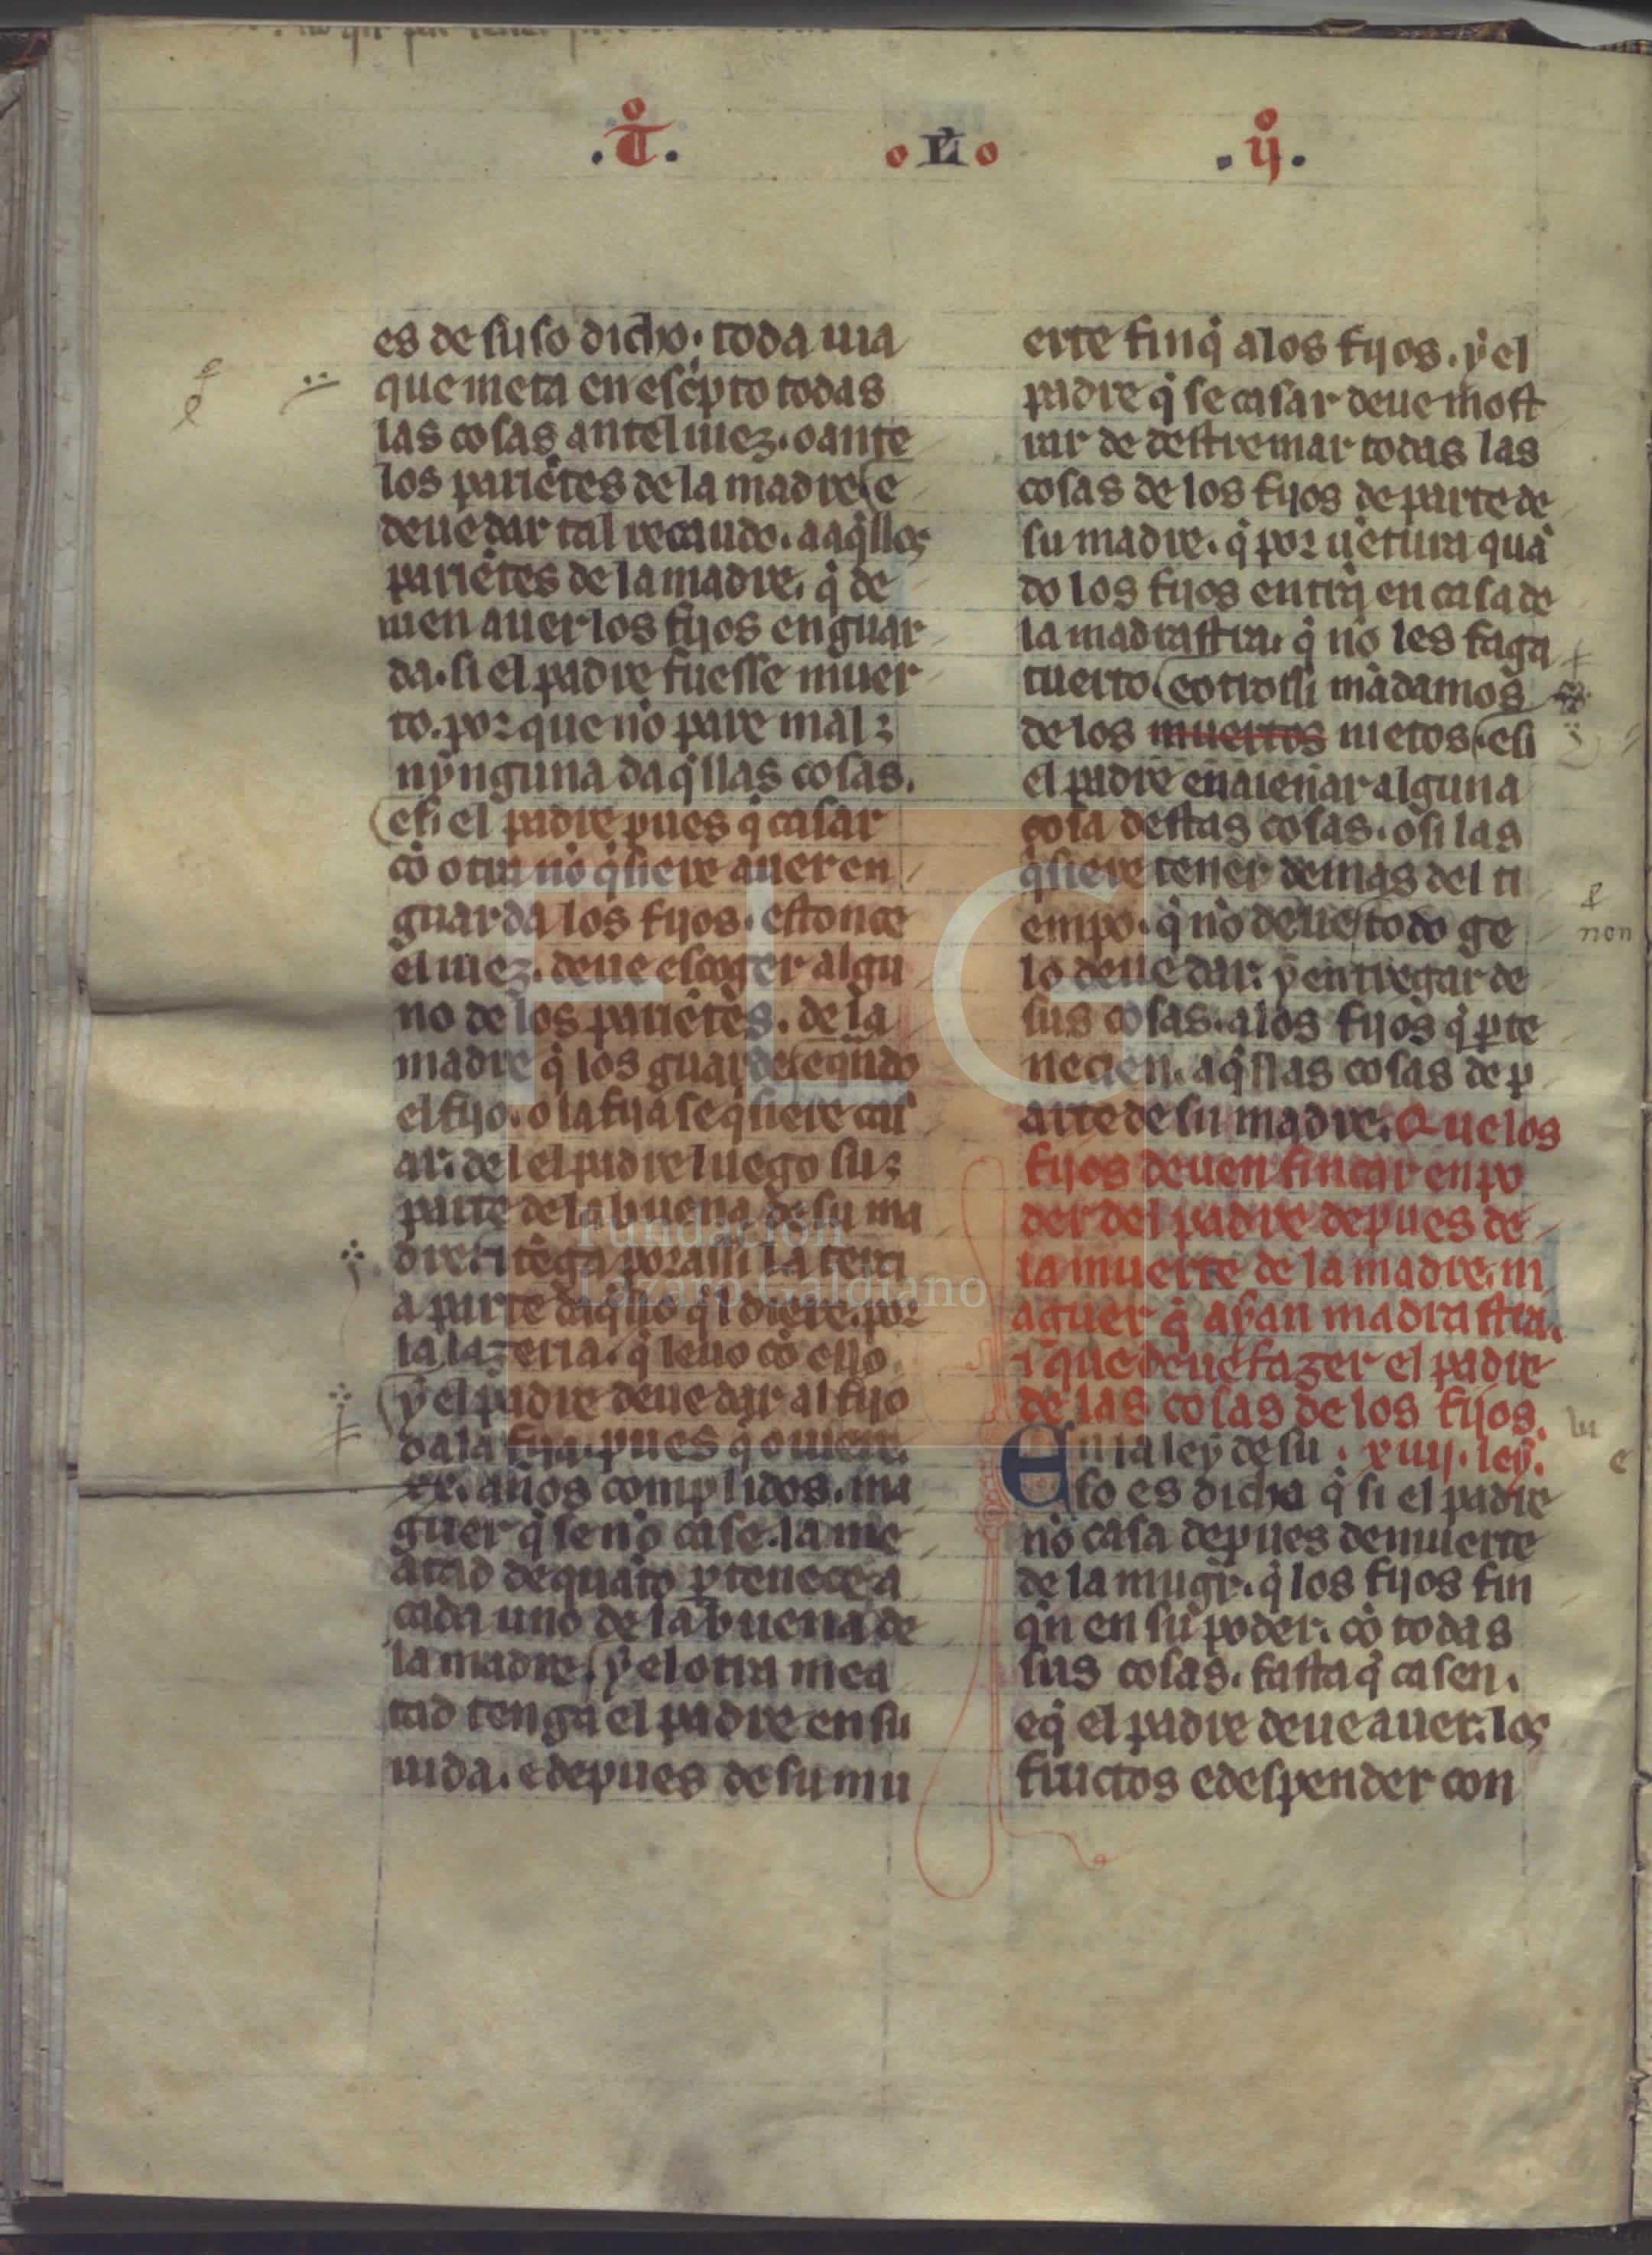 .T͛. .L̃. .ij.
es de suso dicho. toda uia
que meta en escͥpto todas
las cosas antel iuez. o ante
los pariẽtes de la madre. e
deue dar tal recaudo. a aq̃llos
pariẽtes de la madre. q̃ de
uien auer los fijos en guar
da. si el padre fuesse muer
to. por que nõ pare mal
nynguna daq̃llas cosas.
esi el padre pues q̃ casar
cõ otra nõ q̃siere auer en
guarda los fijos. estonce
el iuez. deue escoger algu
no de los pariẽtes. de la
madre q̃ los guarde. e qñdo
el fijo. o la fija se q̃siere cas
ar. del el padre luego su
parte de la buena de su ma
dre. e tẽga por assi la terci
a parte daq̃llo q̃l diere. por
la lazeria. q̃ leuo cõ ello.
y el padre deue dar al fijo
o a la fija. pues q̃ ouiere.
xx. años complidos. ma
guer q̃ se nõ case. la me
atad de quãto ꝑtenece a
cada uno de la buena de
la madre. y el otra mea
tad tenga el padre en su
uida. e depues de su mu
erte finq̃ a los fijos. y el
padre q̃ se casar deue most
rar de destremar todas las
cosas de los fijos de parte de
su madre. q̃ por uẽtura quã
do los fijos entrã en casa de
la madrastra. q̃ nõ les faga
tuerto. e otrossi mãdamos
de los muertos nietos. e si
el padre enaienar alguna
cosa destas cosas. o si las
q̃siere tener demas del ti
empo. q̃ nõ deue. todo ge
lo deue dar. y entregar de
sus cosas. a los fijos q̃ ꝑte
necien. aq̃llas cosas de p
arte de su madre. Que los
fijos deuen fincar en po
der del padre depues de
la muerte de la madre. m
aguer q̃ ayan madrastra.
i que deue fazer el padre
de las cosas de los fijos.
En la ley de su . xiiij. ley.
so es dicha q̃ si el padre
nõ casa depues de muerte
de la mugr. q̃ los fijos fin
qñ en su poder. cõ todas
sus cosas. fasta q̃ casen.
e q̃ el padre deue auer. los
fructos e despender con
non
FLG
Fundación
Lázaro Galdiano